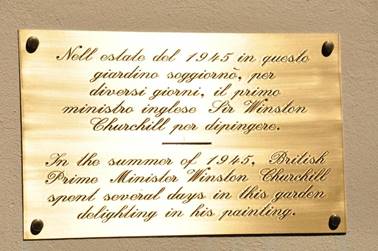 Nell estate del 1945 in questo
giardino soggiornò, per
diversi giorni, il primo
ministro inglese Sir Winston
Churchill per dipingere.
In the summer of 1945, British
Prime Minister Winston Churchill
spent several days in this garden
delighting in his painting.